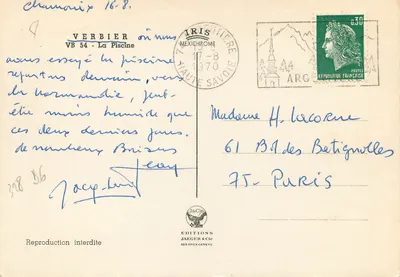 Chamonix 16-8.
VERBIER où nous
VB 54 - La Piscine
avons essayé la piscine
repartons demain, vers
la Normandie, peut-
être moins humide que
ces deux derniers jours.
de nombreux Baisers
Jean
Jacqueline
398 B6
Reproduction interdite
IRIS
MEXICHROME
17-8
1970
HAUTE SAVOIE
0,30
REPUBLIQUE FRANÇAISE
Madame H. Lacorne
61 Bd des Batignolles
75- PARIS
EDITIONS
JAEGER & CIE